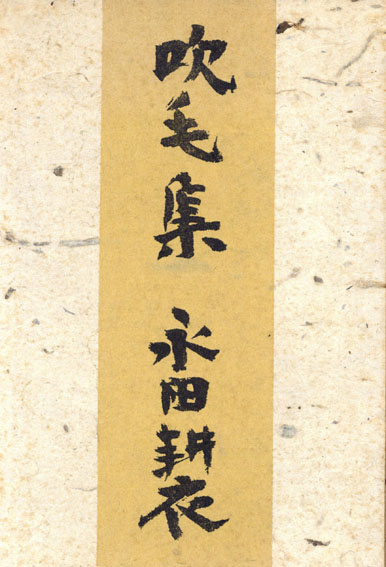 吹毛集 永田耕衣